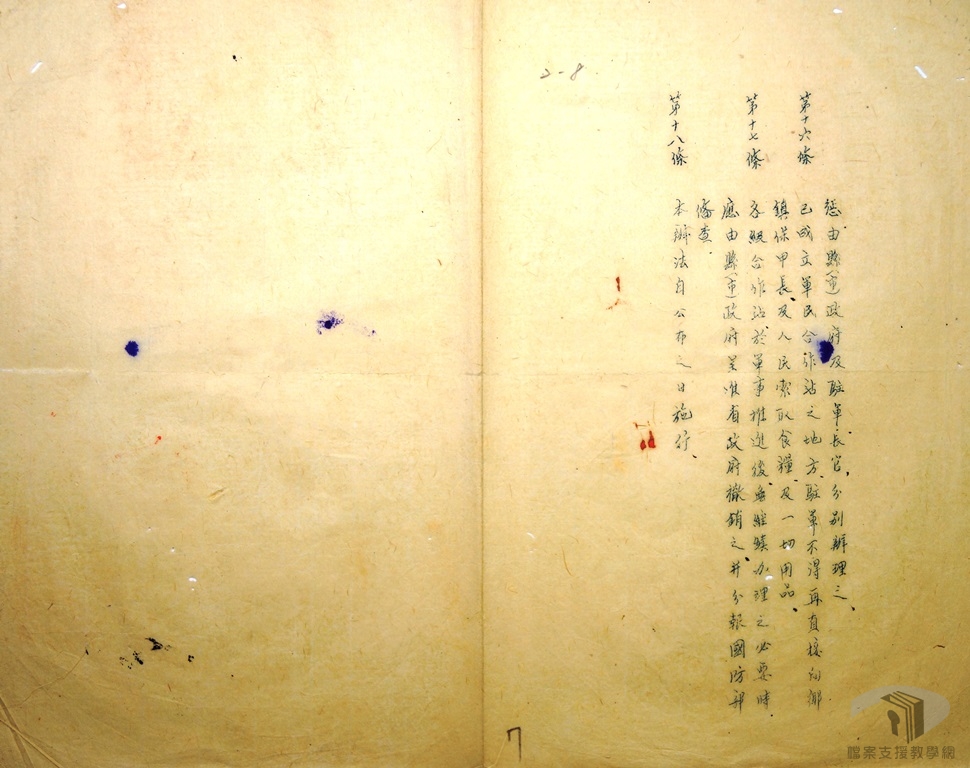 2-8
懲由縣(市)政府及駐軍長官分別辦理之、
第十六條 已成立軍民合作站之地方、駐軍不得再直接向鄉
鎮保甲長、及人民索取食糧、及一切用品、
第十七條 各級合作站、於軍事推進後、無繼續办理之必要時
應由縣(市)政府呈准省政府撤銷之、并分報國防部
俻查、
第十八條 本辦法自公布之日施行、
7
檔案支援教學網